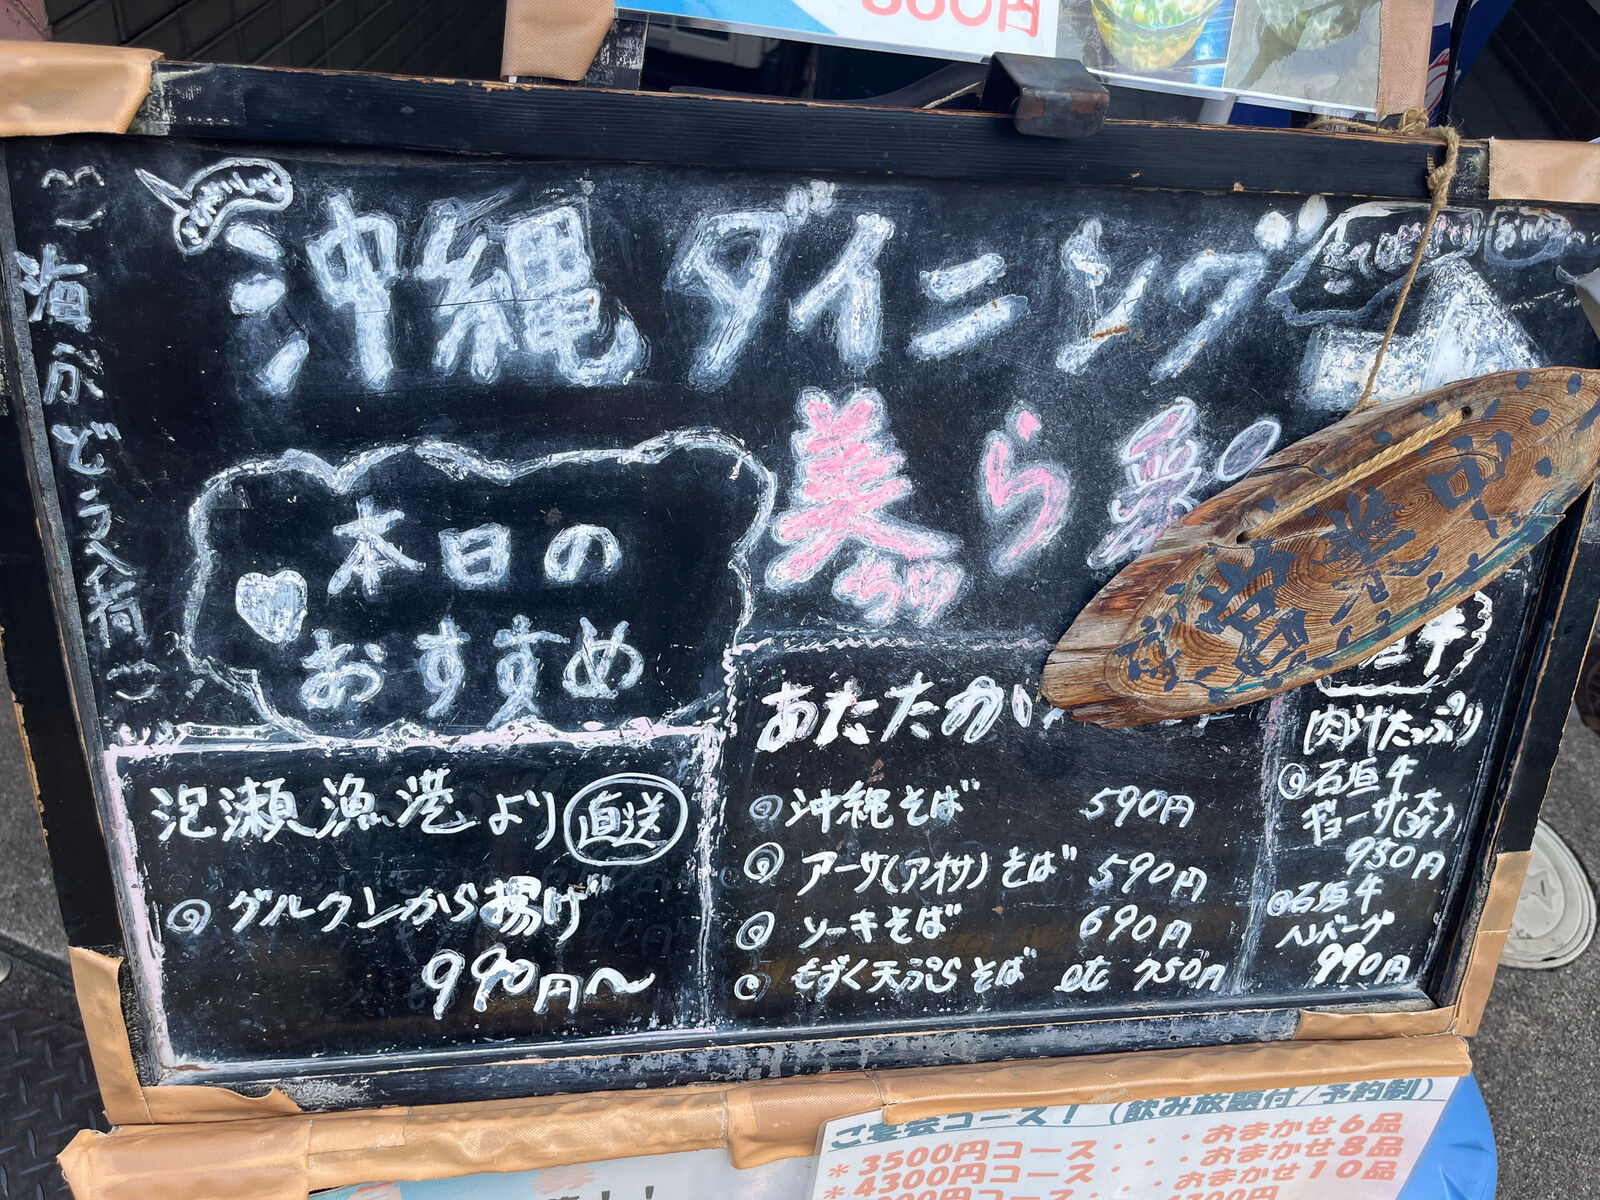 860円
海ぶどう入荷
沖縄ダイニング
美ら
ちゅ
営業中
本日の
おすすめ
泡瀬漁港より直送
グルクンから揚げ
990円〜
あたたかい
沖縄そば 590円
アーサ(アオサ)そば 590円
ソーキそば 690円
もずく天ぷらそば etc 750円
石垣牛
肉汁たっぷり
石垣牛
ギョーザ
950円
石垣牛
ハンバーグ
990円
ご宴会コース！（飲み放題付/予約制）
＊3500円コース・・・おまかせ6品
＊4300円コース・・・おまかせ8品
円コース・・・おまかせ10品